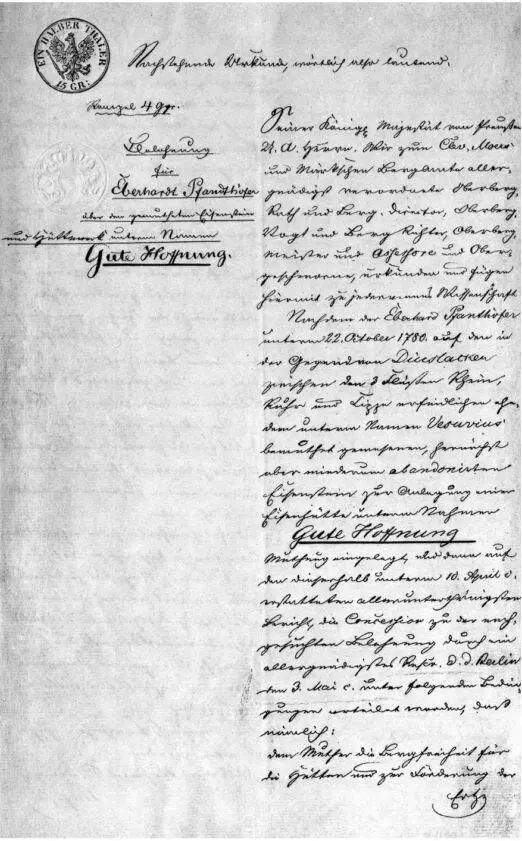 EIN HALBER THALER
15 GR:
Nachstehende Urkunde, wörtlich also lautend.
Stempel 4 ggr.
Belehnung
für
Eberhardt Pfandthöfer
über den gemutheten Eisenstein
und Hüttewerk unterm Namen
Gute Hoffnung.
Seiner Königl. Majestät von Preußen
U. A. Herrn. Wir zum Clev, Meurs
und Märkschen Bergamte aller-
gnädigst verordnete Oberberg-
Rath und Berg-Director, Oberberg-
Vogt und Berg Richter, Oberberg-
Meister und Assessore und Ober-
geschworne, urkunden und fügen
hiermit zu jedermanns Wissenschaft
Nachdem der Eberhard Pfanthöfer
unterm 22. October 1780. auf den in
der Gegend von Dinslacken
zwischen den 3 Flüssen Rhein,
Ruhr und Lippe erfindlichen ehe-
dem unterm Namen Vesuvius
bemuthet gewesenen, hernächst
aber wiederum abandonirten
Eisenstein zur Anlegung einer
Eisenhütte unterm Nahmen
Gute Hoffnung
Muthung eingelegt, und dann auf
den dieserhalb unterm 10. April c.
erstatteten allerunterthänigsten
Bericht, die Concession zu der nach-
gesuchten Belehnung durch ein
allergnädigstes Rescr. d. d. Berlin
den 3. Mai c. unter folgenden Bedin
gungen erteilet worden, daß
nämlich:
dem Muther die Bergfreiheit für
die Hütten und zur Förderung der
Ertz